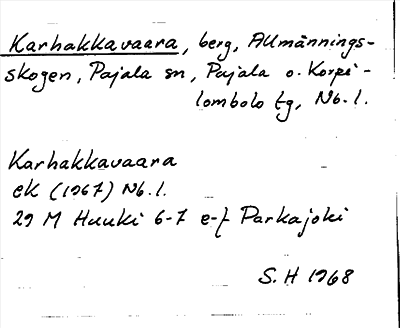 Karhakkavaara, berg, Allmännings-
skogen, Pajala sn, Pajala o. Korpi-
lombolo tg, Nb. l.
Karhakkavaara
ek (1967) Nb. l.
29 M Huuki 6-7 e-f Parkajoki
S. H 1968